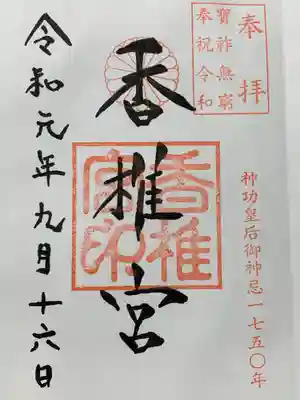 奉拝
寶祚無窮
奉祝令和
香椎宮
香椎
宮印
神功皇后御神忌一七五〇年
令和元年九月十六日